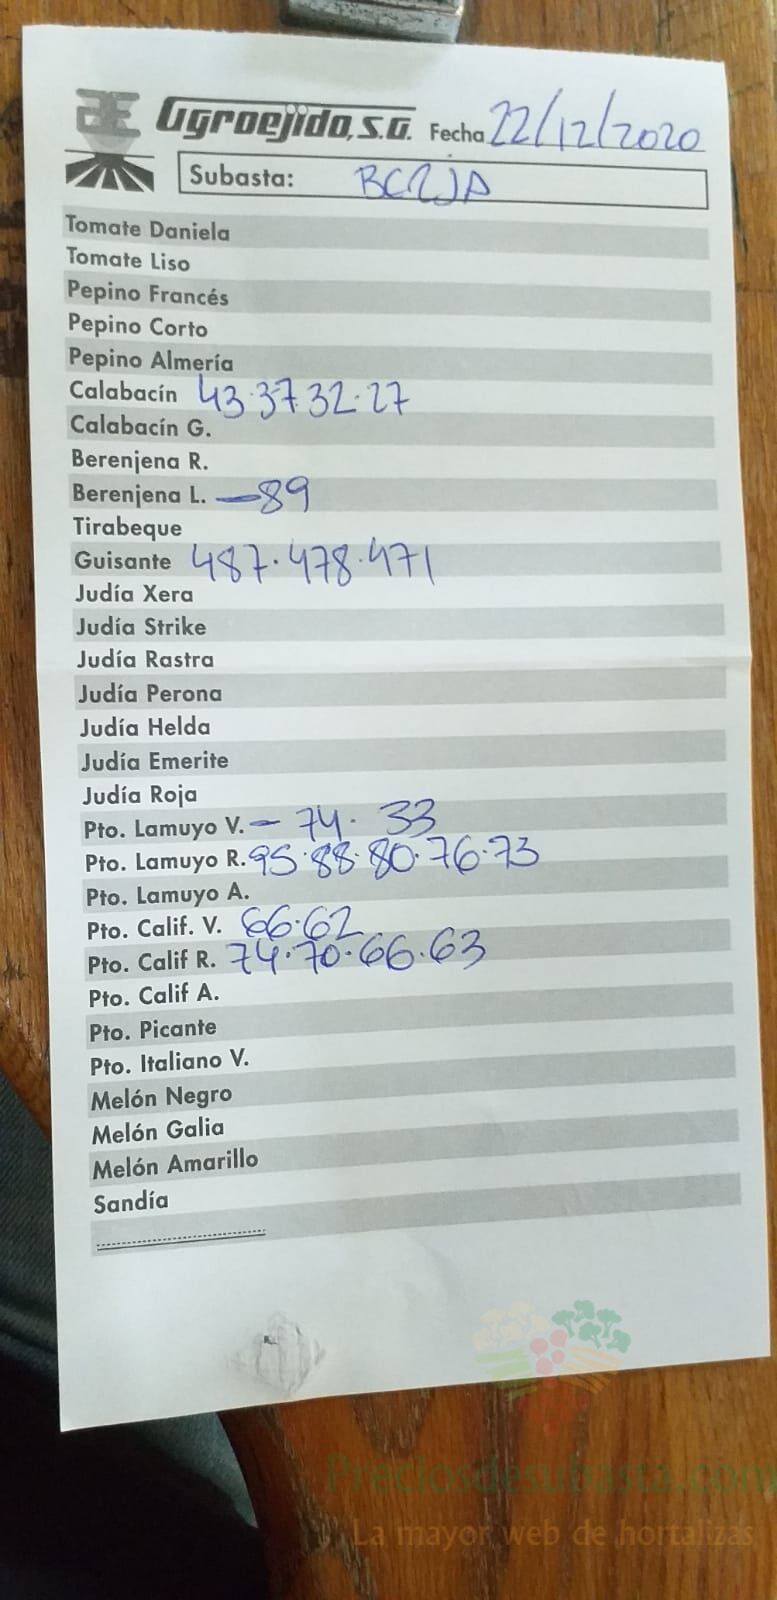 agroejido, S.A. Fecha 22/12/2020
Subasta: BERJA
Tomate Daniela
Tomate Liso
Pepino Francés
Pepino Corto
Pepino Almería
Calabacín 43·37·32·27
Calabacín G.
Berenjena R.
Berenjena L. —89
Tirabeque
Guisante 487·478·471
Judía Xera
Judía Strike
Judía Rastra
Judía Perona
Judía Helda
Judía Emerite
Judía Roja
Pto. Lamuyo V. — 74· 33
Pto. Lamuyo R. 95·88·80·76·73
Pto. Lamuyo A.
Pto. Calif. V. 66·62
Pto. Calif R. 74·70·66·63
Pto. Calif A.
Pto. Picante
Pto. Italiano V.
Melón Negro
Melón Galia
Melón Amarillo
Sandía
Preciosdesubasta.com
La mayor web de hortalizas